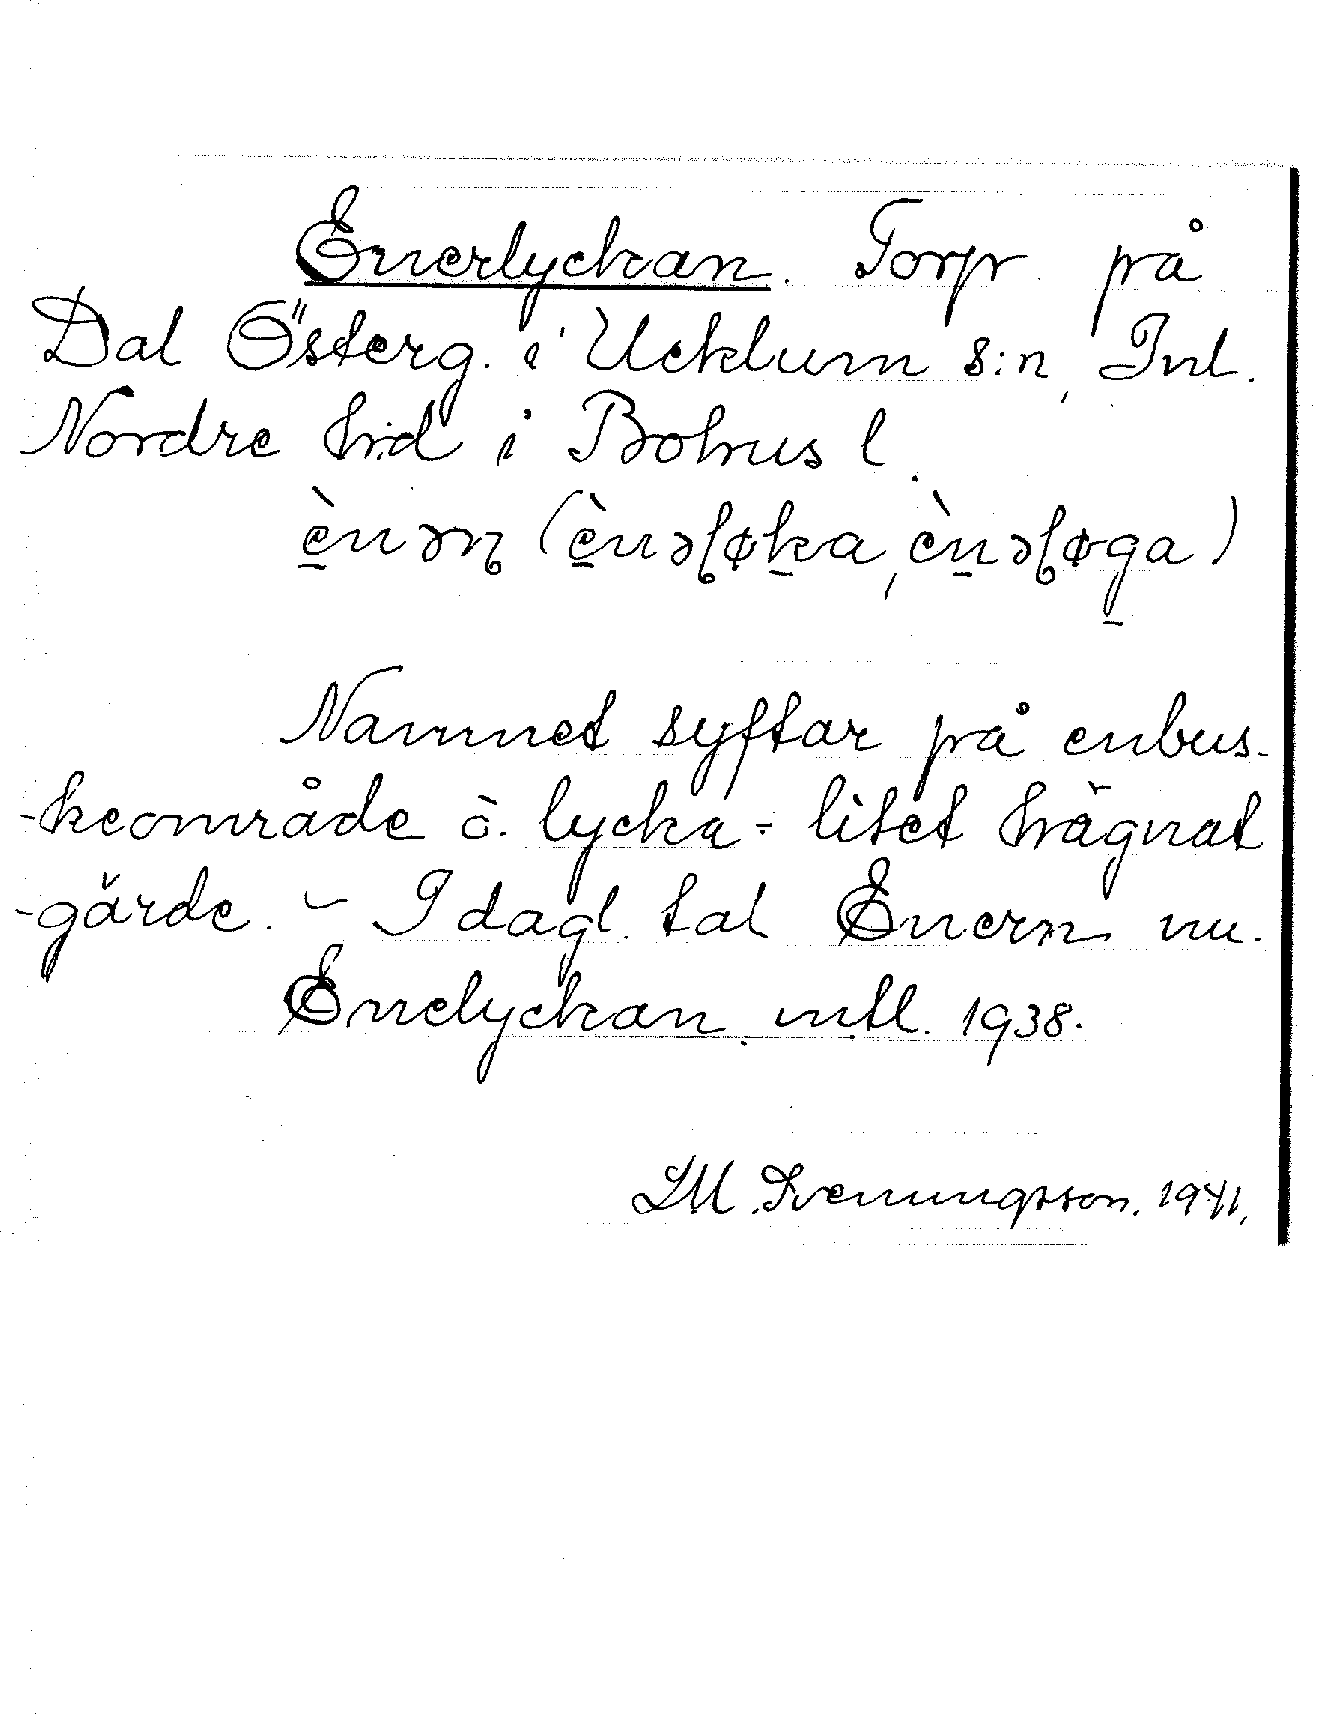 Enerlyckan. Torp på
Dal Österg. i Ucklum s:n, Inl.
Nordre h:d i Bohus l.
è̱nəɳ (è̱nəɭøḵa, èṉəɭøg̱a)
Namnet syftar på enbus-
-keområde o. lycka = litet hägnat
-gärde. - I dagl. tal Enern nu.
Enelyckan mtl. 1938.
LM. Svenungsson. 1941.